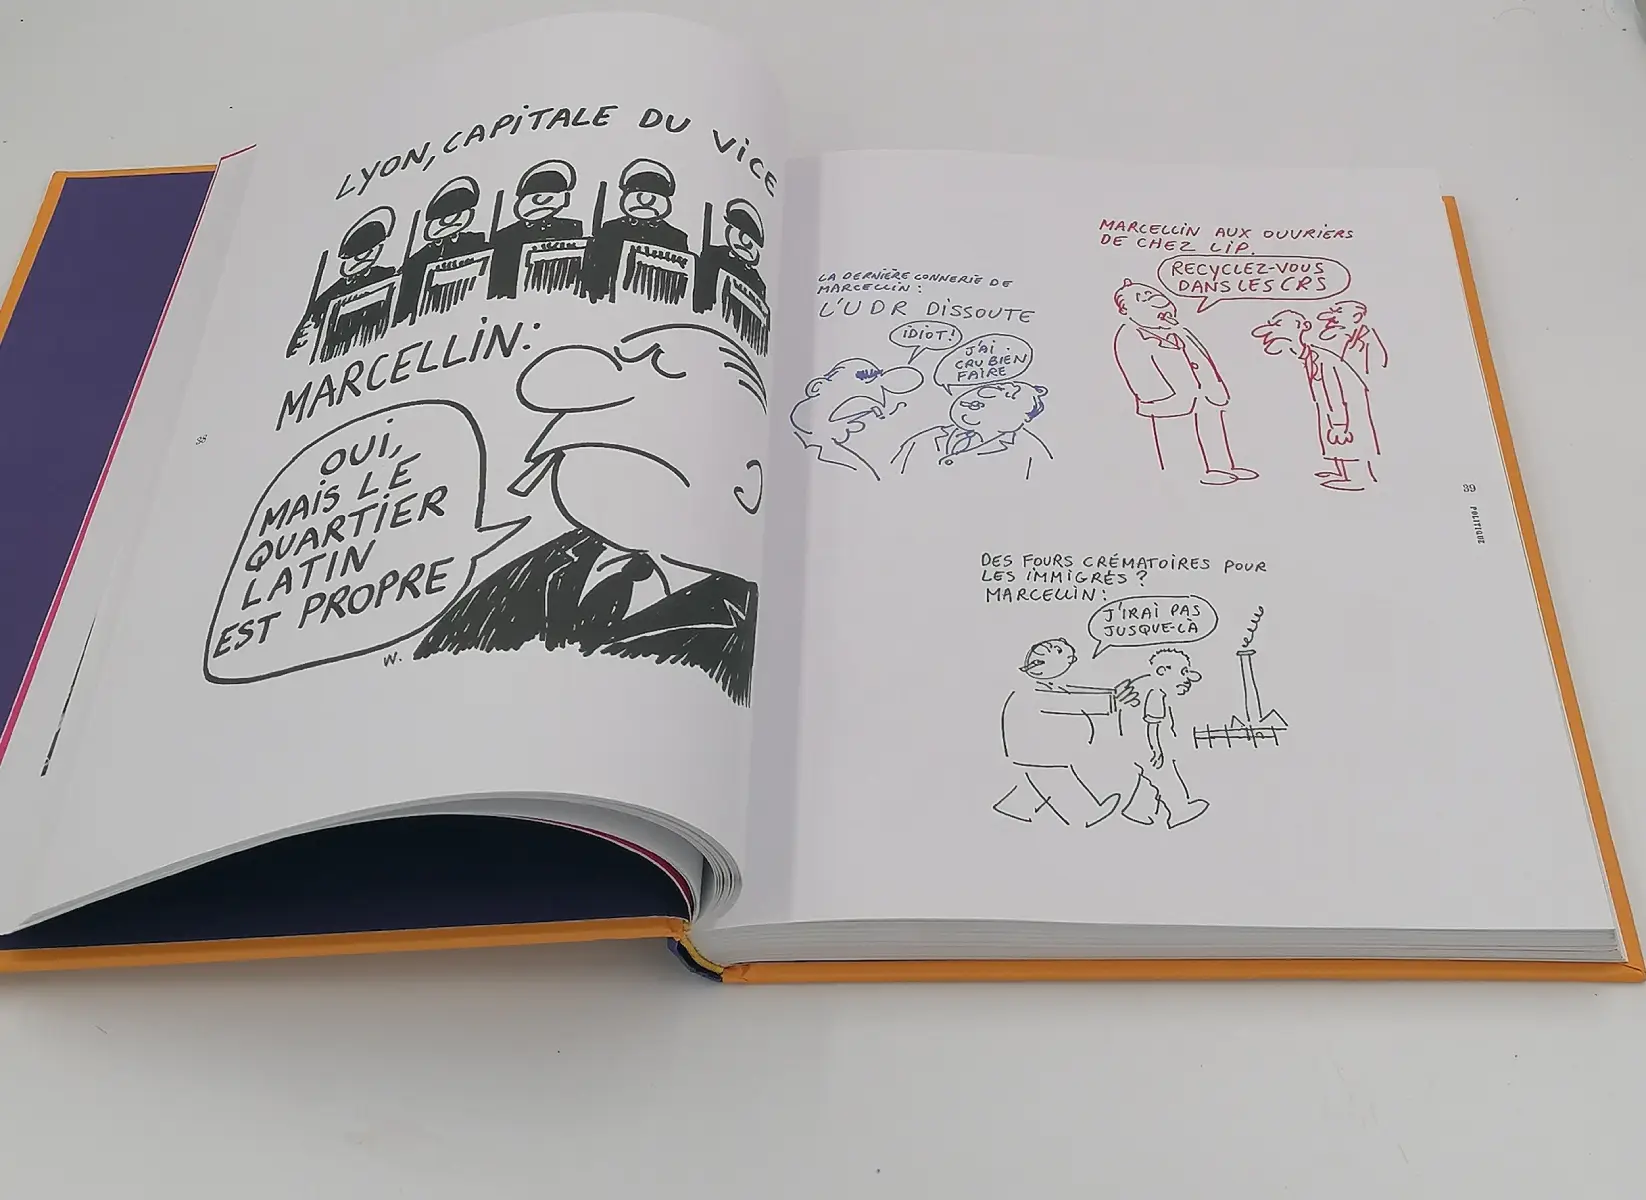 LYON, CAPITALE DU VICE
MARCELLIN:
OUI,
MAIS LE
QUARTIER
LATIN
EST PROPRE
W.
LA DERNIÈRE CONNERIE DE
MARCELLIN:
L'UDR DISSOUTE
IDIOT!
J'AI
CRU BIEN
FAIRE
MARCELLIN AUX OUVRIERS
DE CHEZ LIP.
RECYCLEZ-VOUS
DANS LES CRS
DES FOURS CRÉMATOIRES POUR
LES IMMIGRÉS?
MARCELLIN:
J'IRAI PAS
JUSQUE-LÀ
39
POLITIQUE